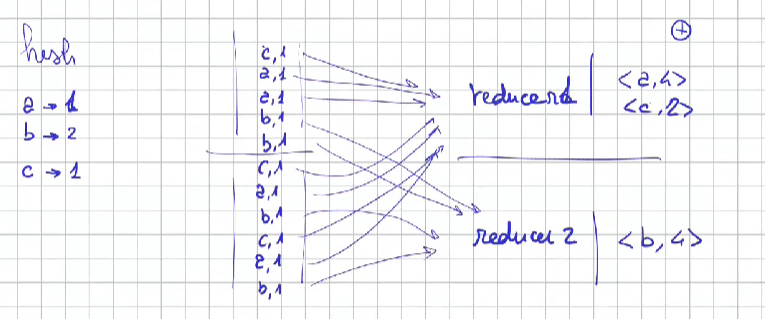 hash
a → 1
b → 2
c → 1
c,1
a,1
a,1
b,1
b,1
c,1
a,1
b,1
c,1
a,1
b,1
reducer 1
<a,4>
<c,2>
reducer 2
<b,4>